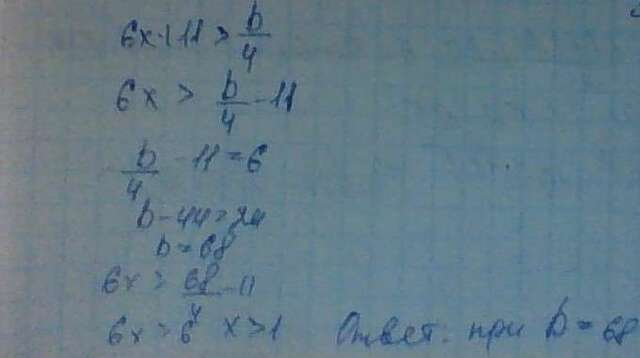 6x+11 > b/4
6x > b/4 - 11
b/4 - 11 = 6
b - 44 = 24
b = 68
6x > 68/4 - 11
6x > 6 x > 1 Ответ: при b = 68